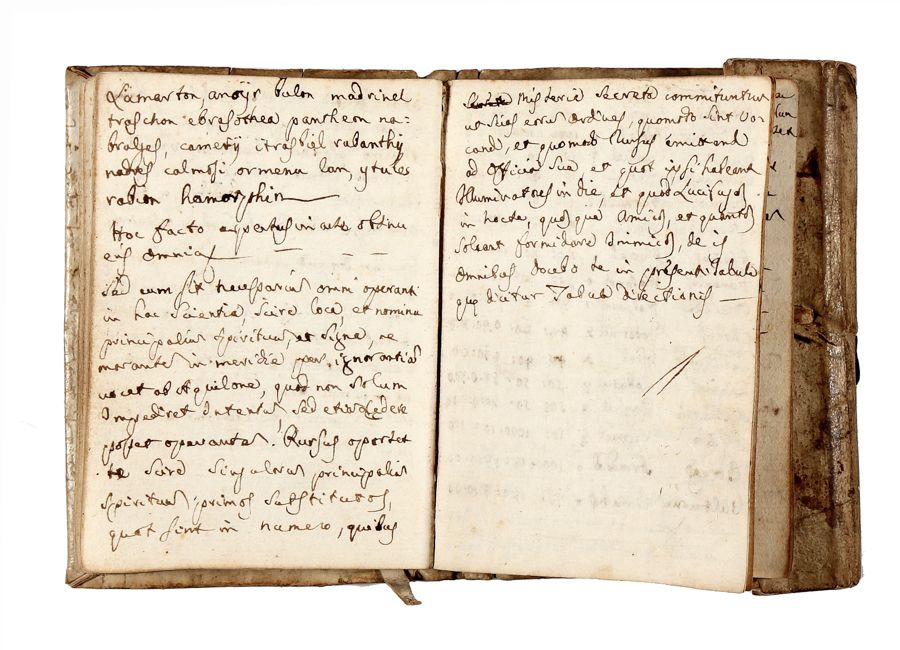 Lamarton, anoyr bulon madrinel
traschon ebrasothea, pantheon na=
brulges, camery itrasbiel rubanthy
nadres calmosi ormenu lan, ytules
rabion hamorphin
Hoc facto expertus in arte obtinu
eris omnia
Sed cum sit necessarium omni operanti
in hac Scientia, Scire loca, et nomina
principalium Spirituum, et Signa, ne
morantem in meridie per ignorantiam
vocet ab Aquilone, quod non solum
Impediret Intentum, Sed etiam Lædere
posset operantem. Rursus oportet
te Scire Singulorum principalium
Spirituum primos Substitutos,
quot sint in numero, quibus
Misteria Secreta committuntur
ut Scies eorum ordines, quomodo sint vo=
candi, et quomodo Rursus emittendi
ad Officia Sua, et quot ipsi habeant
Illuminatores in die, et quot Lucifugos
in nocte, quos que Amicos, et quantos
Soleant formidare Inimicos, de is
Omnibus docebo te in præsenti Tabula
quæ dicitur Tabula directionis